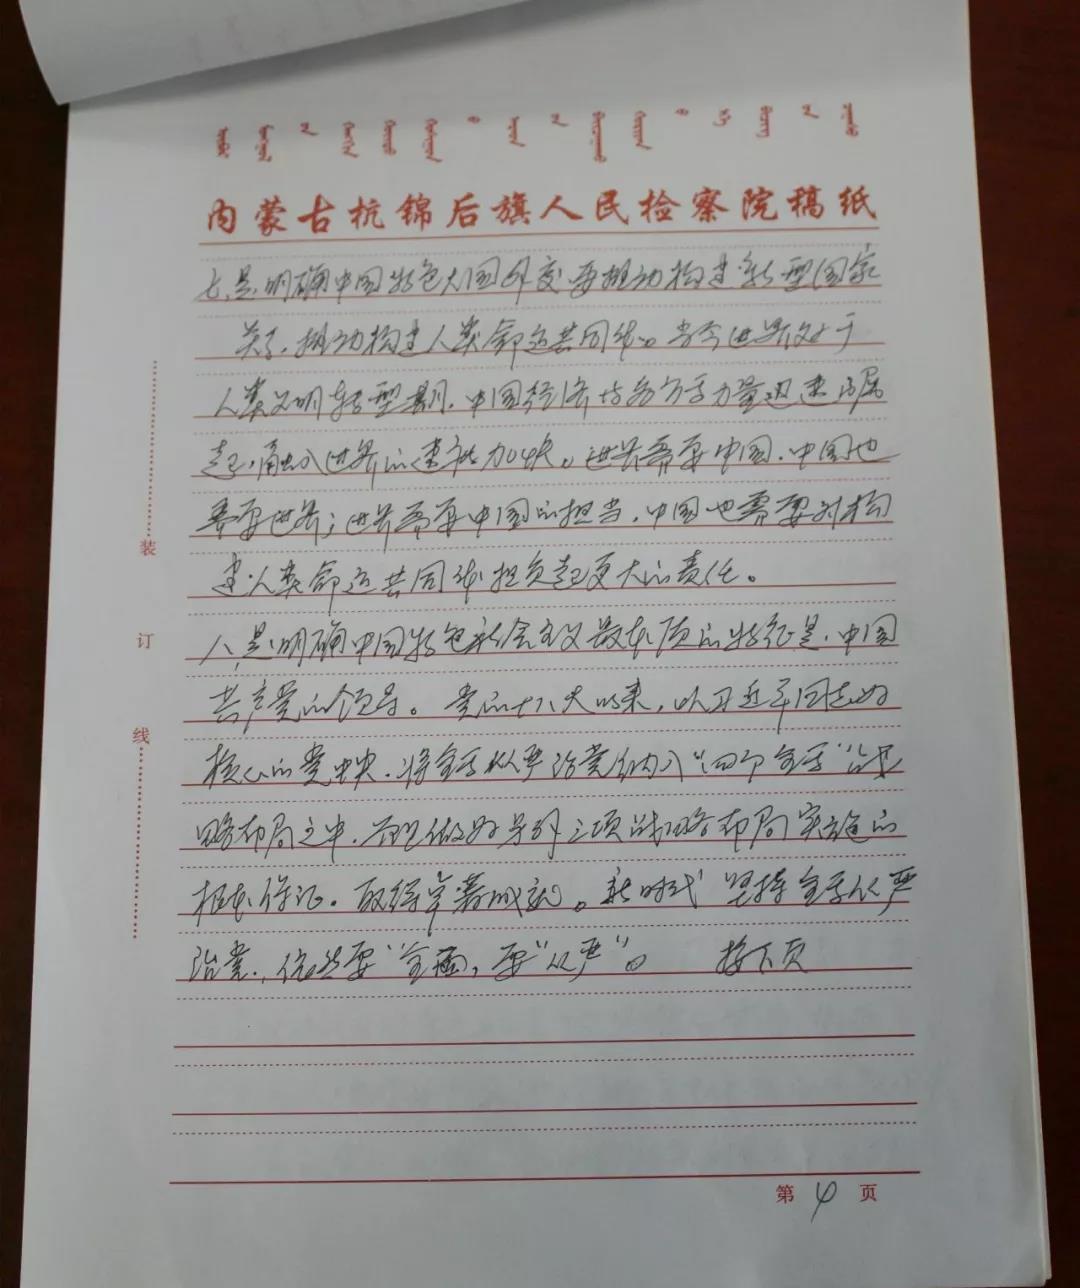 内蒙古杭锦后旗人民检察院稿纸
七、是明确中国特色大国外交要推动构建新型国家
关系，推动构建人类命运共同体。当今世界处于
人类文明转型期，中国经济等各方面力量迅速崛
起，融入世界的速度加快。世界需要中国，中国也
需要世界；世界需要中国的担当，中国也需要对构
建人类命运共同体担负起更大的责任。
八、是明确中国特色社会主义最本质的特征是中国
共产党的领导。党的十八大以来，以习近平同志为
核心的党中央，将全面从严治党纳入“四个全面”战
略布局之中，而且做好另外三项战略布局实施的
根本保证。取得卓著成就。新时代坚持全面从严
治党，依然要“全面，要“从严”。 接下页
装
订
线
第 4 页